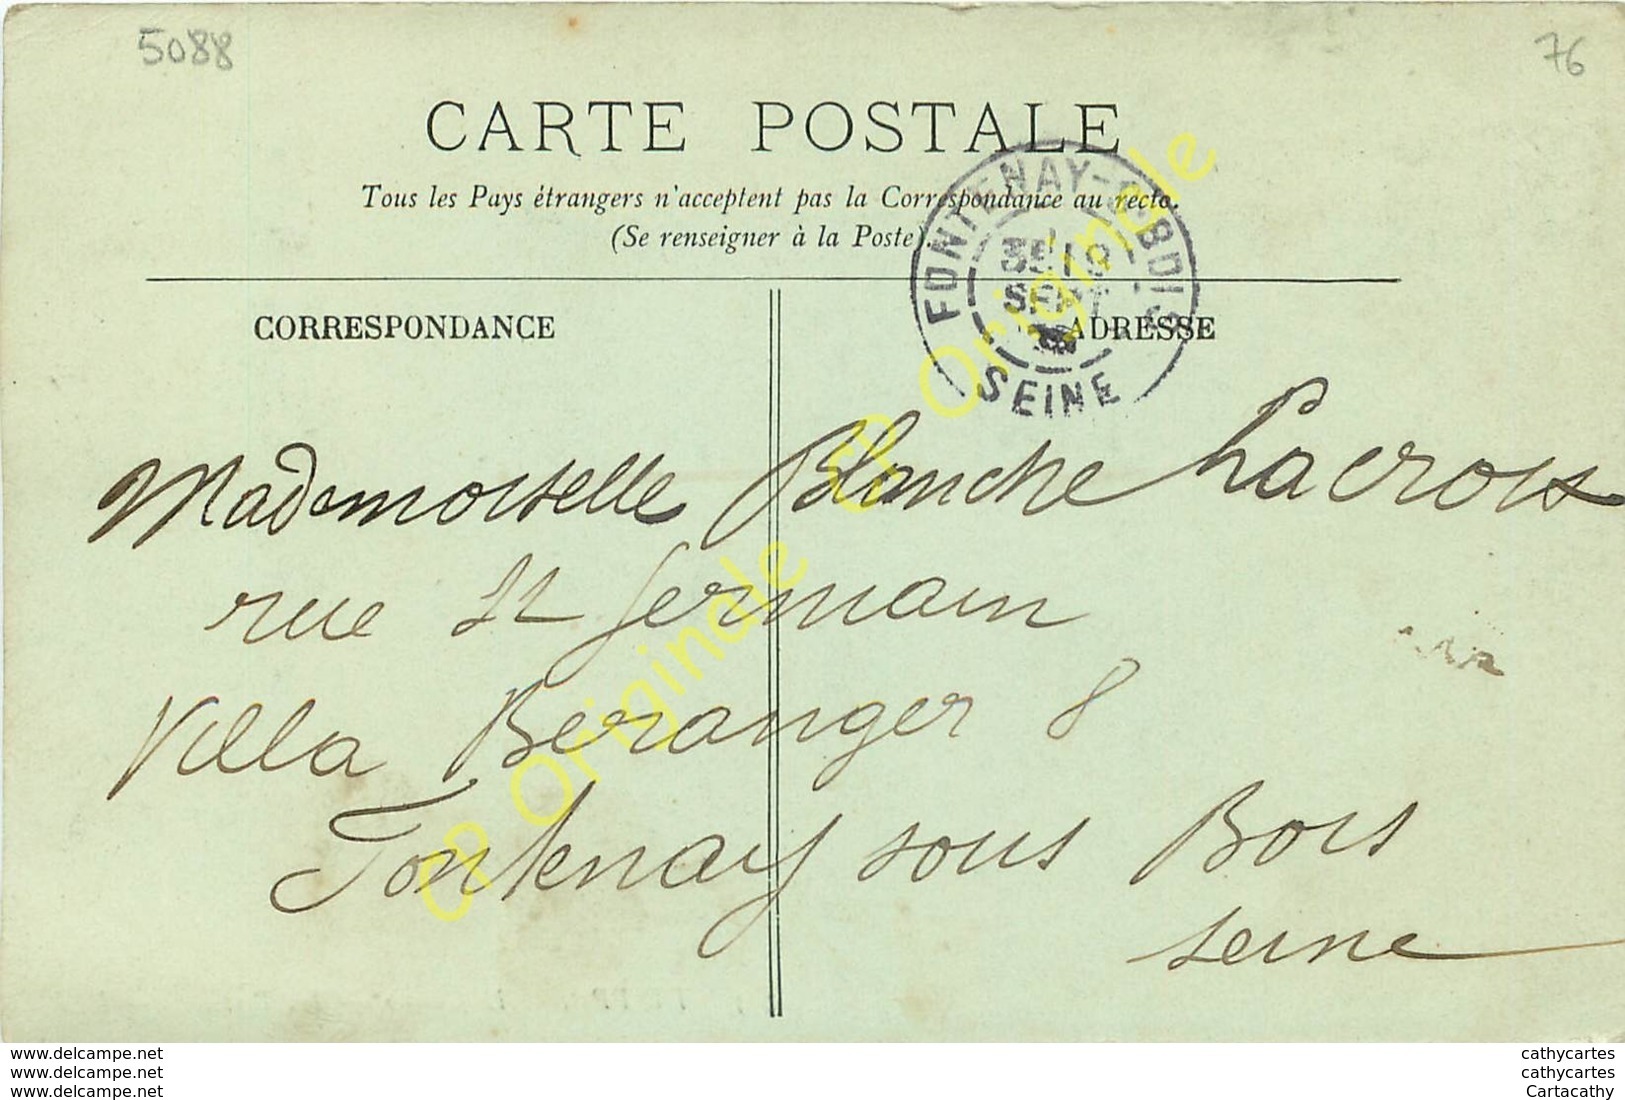 5088
76
CARTE POSTALE
Tous les Pays étrangers n'acceptent pas la Correspondance au recto.
(Se renseigner à la Poste).
FONTENAY-S-BOIS
SEPT
SEINE
CORRESPONDANCE
ADRESSE
Mademoiselle Blanche Lacroix
rue St Germain
Villa Beranger 8
Fontenay sous Bois
Seine
CP Originale CP Originale
www.delcampe.net
www.delcampe.net
www.delcampe.net
cathycartes
cathycartes
Cartacathy